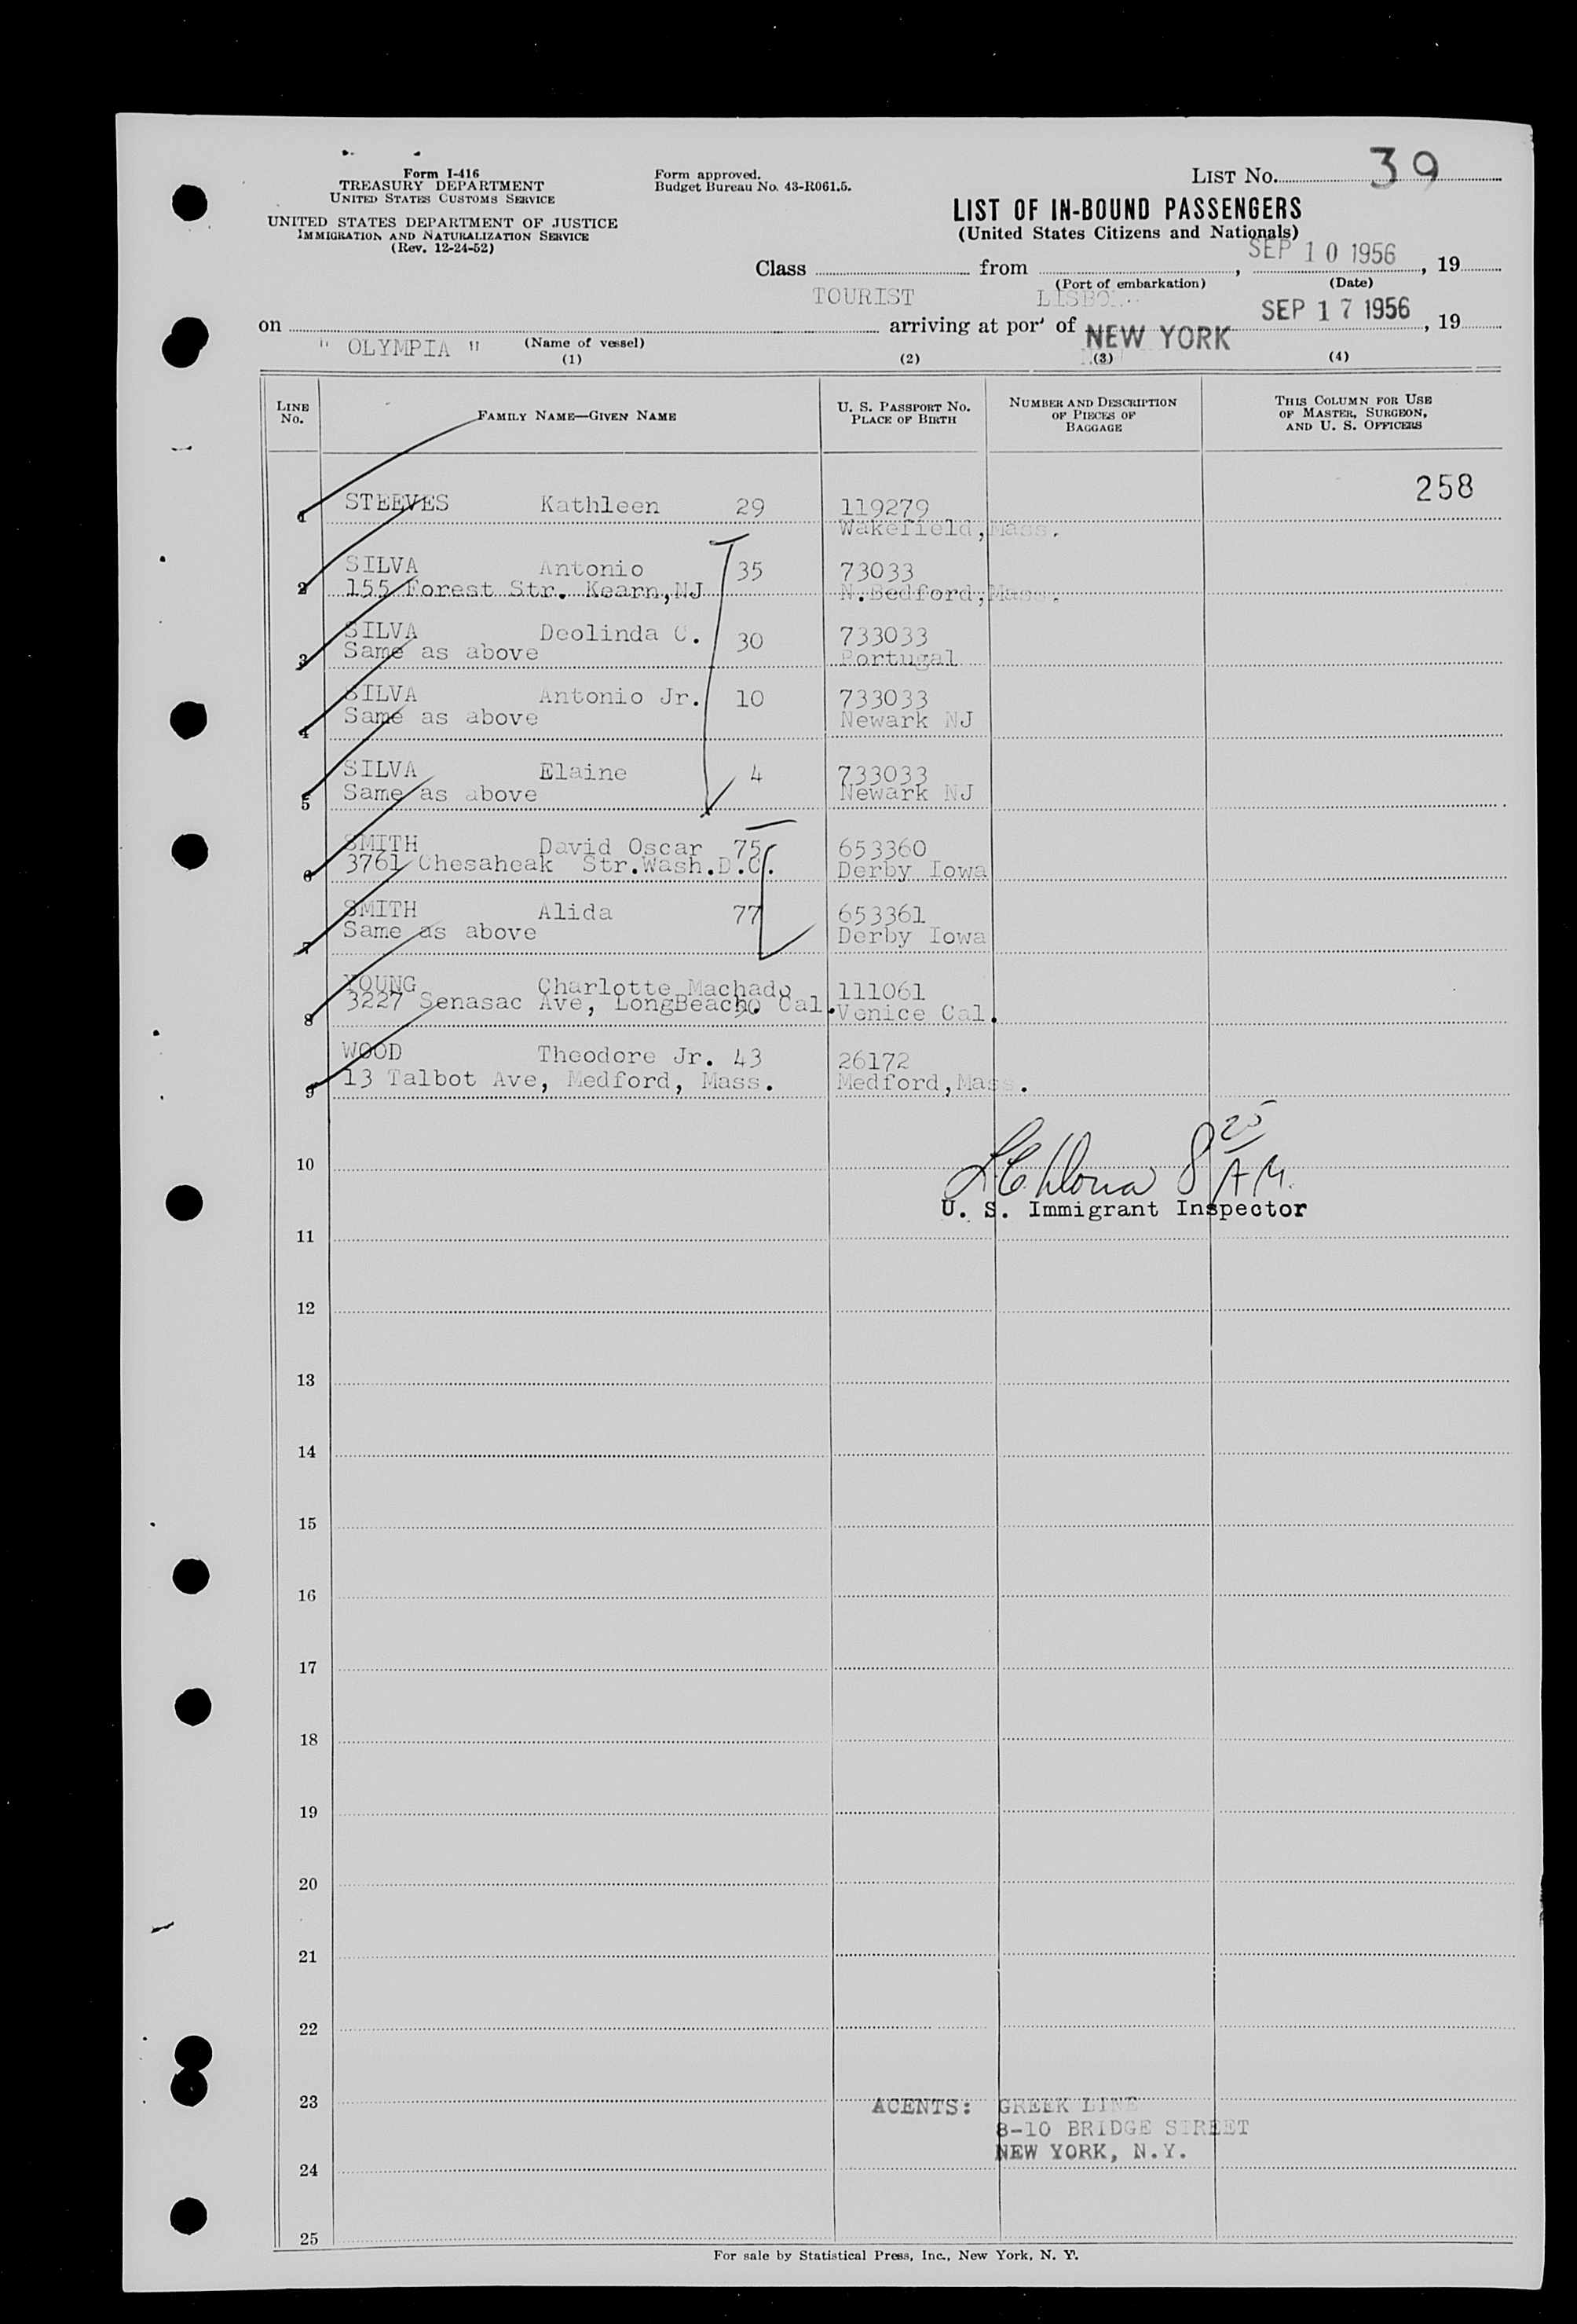 Form I-416
TREASURY DEPARTMENT
UNITED STATES CUSTOMS SERVICE
UNITED STATES DEPARTMENT OF JUSTICE
IMMIGRATION AND NATURALIZATION SERVICE
(Rev. 12-24-52)
Form approved.
Budget Bureau No. 43-R061.5.
LIST NO. 39
LIST OF IN-BOUND PASSENGERS
(United States Citizens and Nationals)
Class TOURIST from LISBON, SEP 10 1956, 19
(Port of embarkation) (Date)
on " OLYMPIA " arriving at port of NEW YORK SEP 17 1956, 19
(Name of vessel)
(1) (2) (3) (4)
LINE NO. FAMILY NAME—GIVEN NAME U. S. PASSPORT NO. PLACE OF BIRTH NUMBER AND DESCRIPTION OF PIECES OF BAGGAGE THIS COLUMN FOR USE OF MASTER, SURGEON, AND U. S. OFFICERS
258
1 STEEVES Kathleen 29 119279
Wakefield, Mass.
2 SILVA Antonio 35 73033
155 Forest Str. Kearn,NJ N.Bedford,Mass.
3 SILVA Deolinda C. 30 733033
Same as above Portugal
4 SILVA Antonio Jr. 10 733033
Same as above Newark NJ
5 SILVA Elaine 4 733033
Same as above Newark NJ
6 SMITH David Oscar 75 653360
3761 Chesaheak Str.Wash.D.C. Derby Iowa
7 SMITH Alida 77 653361
Same as above Derby Iowa
8 YOUNG Charlotte Machado 111061
3227 Senasac Ave, LongBeach. Cal. 30 Venice Cal.
9 WOOD Theodore Jr. 43 26172
13 Talbot Ave, Medford, Mass. Medford,Mass.
8 25 A M.
10
U. S. Immigrant Inspector
11
12
13
14
15
16
17
18
19
20
21
22
23 AGENTS: GREEK LINE
8-10 BRIDGE STREET
NEW YORK, N.Y.
24
25
For sale by Statistical Press, Inc., New York, N. Y.